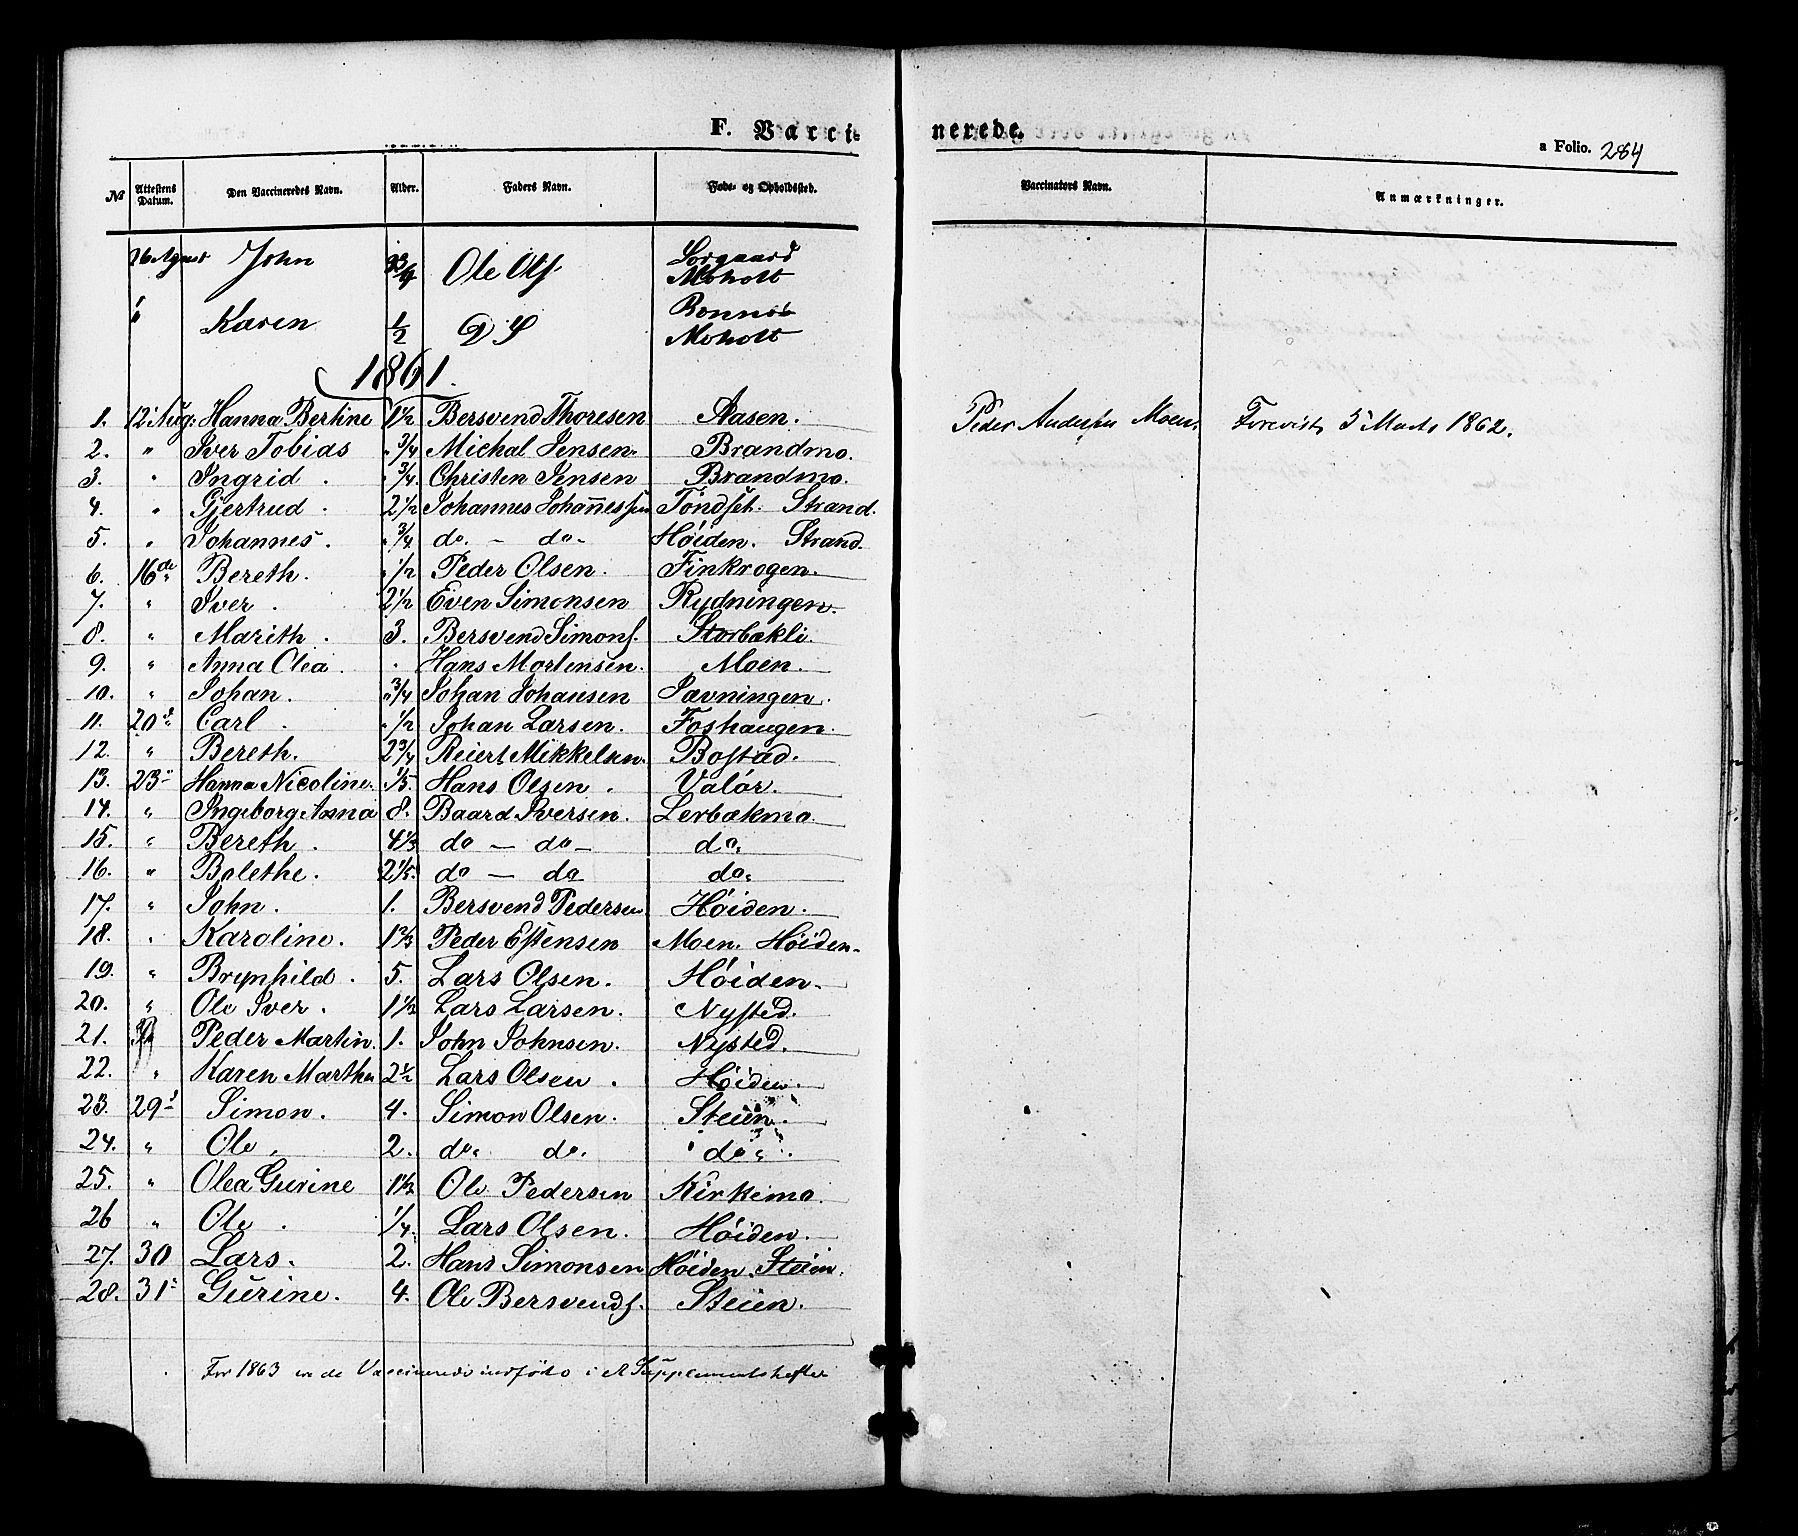 F. Vaccinerede.
a Folio. 284
No Attestens Datum. Den Vaccineredes Navn. Alder. Faders Navn. Føde- og Opholdssted. Vaccinators Navn. Anmærkninger.
26 August John Ole Ols. Sorgaard Moholt
" Karen 1/2 Ronnio Moholt
1861.
1. 12' Aug: Hanna Bertine 1 1/2 Bersvend Thoresen Aasen. Peder Andersen Moen. Forevist 5 Marts 1862.
2. " Iver Tobias " 3/4 Michal Jensen. Brandmo.
3. " Ingrid. " 3/4. Christen Jensen Brandmo.
4. " Gjertrud. 2 1/2 Johannes Johannessen Tøndset. Strand.
5. " Johannes. " 3/4 do. - do. Høiden. Strand.
6. 16de Bereth. " 1/2 Peder Olsen. Finkrogen.
7. " Iver. 2 1/2 Even Simonsen Rydningen.
8. " Marith. 3. Bersvend Simons. Storbækli.
9. " Anna Olea. " Hans Mortensen. Moen.
10. " Johan. " 3/4 Johan Johansen Jævningen.
11. 20d Carl. " 1/2 Johan Larsen. Foshaugen.
12. " Bereth. 2 3/4 Reiert Mikkelsen. Bostad.
13. 23 Hanna Nicoline. 1/5. Hans Olsen. Valør.
14. " Ingeborg Anna 8. Baard Iversen. Lerbækmo.
15. " Bereth. 4 1/3 do - do - do.
16. " Bolethe. 2 1/5. do - do do.
17. " John. 1. Bersvend Pedersen Høiden.
18. " Karoline. 1 2/3 Peder Estensen Moen. Høiden.
19. " Brynhild. 5. Lars Olsen. Høiden.
20. " Ole Iver. 1 1/2 Lars Larsen. Nysted.
21. Peder Martin. 1. John Johnsen. Nysted.
22. " Karen Martha 2 1/2 Lars Olsen. Høiden.
23. 29 Simon. 4. Simon Olsen. Steien.
24. " Ole. 2. do. do. do.
25. " Olea Gurine 1 1/2 Ole Pedersen Kirkemo.
26 " Ole. 1/4. Lars Olsen. Høiden.
27. 30 Lars. 2. Hans Simonsen Høiden. Steien.
28. 31 Gurine. 4. Ole Bersvends. Steien.
For 1863 ere de Vaccinerede indførte i et Supplementshefte